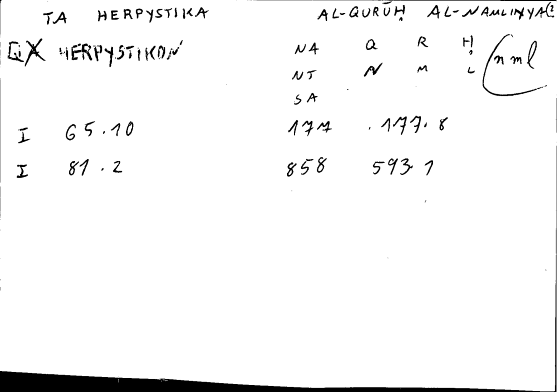 TA HERPYSTIKA AL-QURŪḤ AL-NAMLIYYA
HERPYSTIKON NA Q R Ḥ nml
NT N M L
SA
I 65.10 177 .177.8
I 81.2 858 593.1